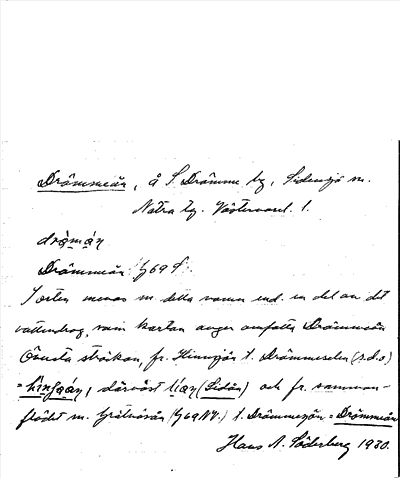 Drömmeån, å S. Drömme by, Sidensjö sn.
Nätra tg. Västernorrl. l.
drǫ̀mą́n
Drömmeån: 69 S.
I orten menas m. detta namn end. en del av det
vattendrag, som kartan anger omfatta Drömmeån
Översta sträckan, fr. t. Drömmeselen (s.d.o)
= , därnäst lían (Lidån) och fr. samman-
flödet m. (69 NV.) t. Drömmesjön = Drömmeån
Hans A. Söderberg 1930.